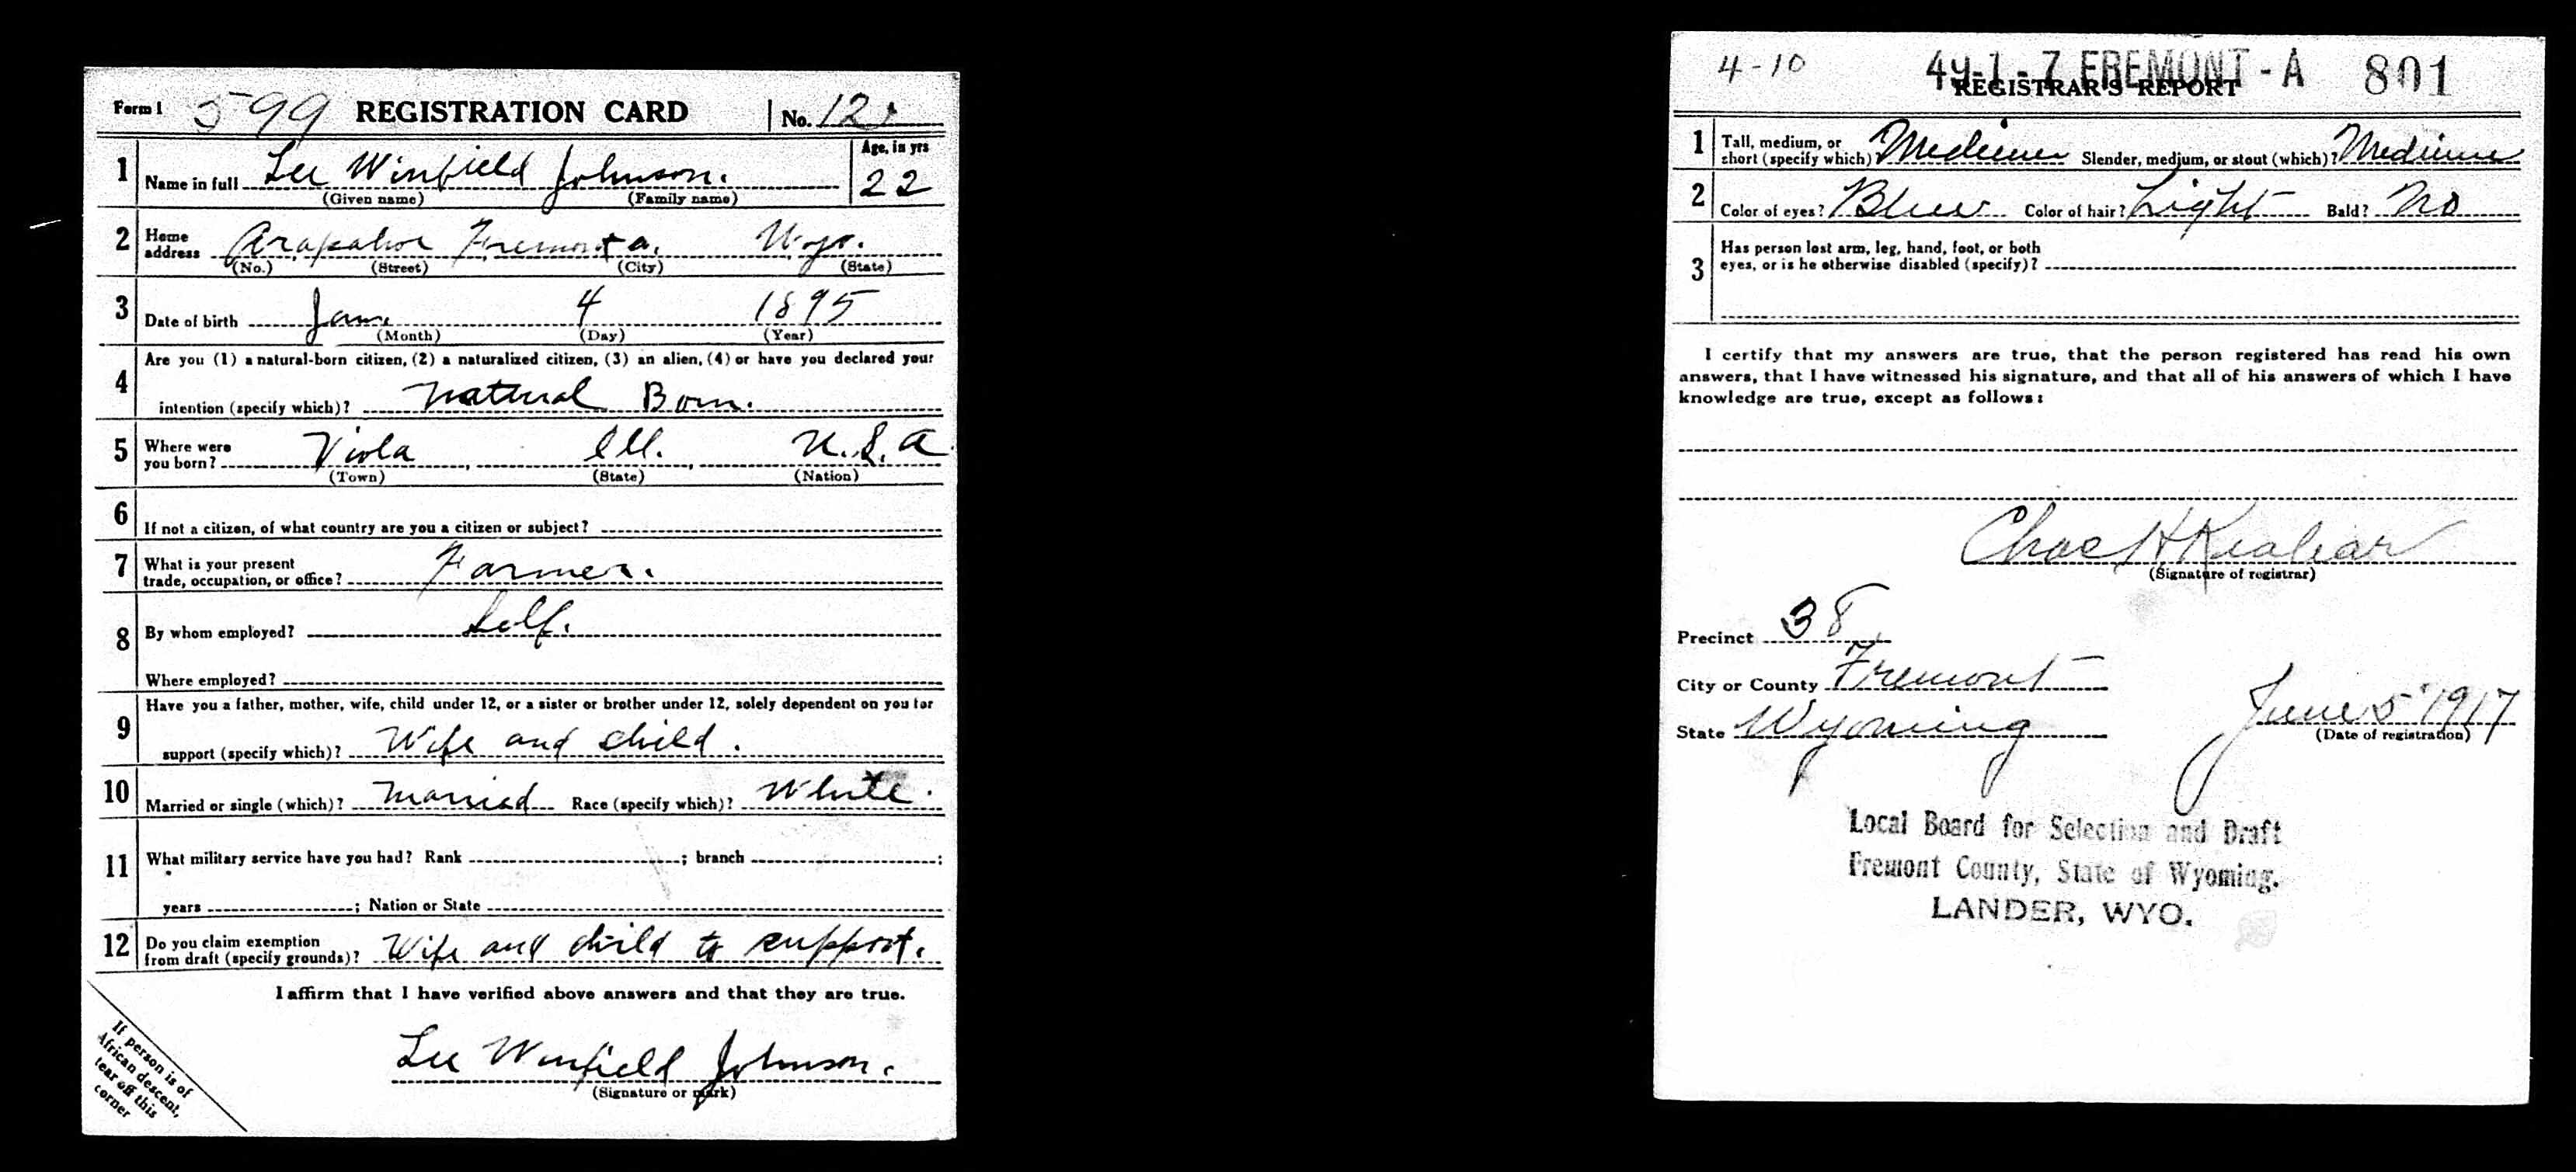 Form 1 599 REGISTRATION CARD No. 12
1 Name in full Lee Winfield Johnson. Age, in yrs 22
(Given name) (Family name)
2 Home address Arapahoe Fremont Wyo.
(No.) (Street) (City) (State)
3 Date of birth Jan. 4 1895
(Month) (Day) (Year)
4 Are you (1) a natural-born citizen, (2) a naturalized citizen, (3) an alien, (4) or have you declared your
intention (specify which)? Natural Born.
5 Where were you born? Viola, Ill., U.S.A.
(Town) (State) (Nation)
6 If not a citizen, of what country are you a citizen or subject?
7 What is your present
trade, occupation, or office? Farmer.
8 By whom employed? Self.
Where employed?
9 Have you a father, mother, wife, child under 12, or a sister or brother under 12, solely dependent on you for
support (specify which)? Wife and child.
10 Married or single (which)? Married Race (specify which)? White.
11 What military service have you had? Rank ; branch ;
years ; Nation or State
12 Do you claim exemption
from draft (specify grounds)? Wife and child to support.
I affirm that I have verified above answers and that they are true.
Lee Winfield Johnson.
(Signature or mark)
If person is of
African descent,
tear off this
corner
4-10 49-1-7 FREMONT-A 801
REGISTRAR'S REPORT
1 Tall, medium, or
short (specify which) Medium Slender, medium, or stout (which)? Medium
2 Color of eyes? Blue Color of hair? Light Bald? No
3 Has person lost arm, leg, hand, foot, or both
eyes, or is he otherwise disabled (specify)?
I certify that my answers are true, that the person registered has read his own
answers, that I have witnessed his signature, and that all of his answers of which I have
knowledge are true, except as follows:
Chas H
(Signature of registrar)
Precinct 38
City or County Fremont
State Wyoming June 5 1917
(Date of registration)
Local Board for Selection and Draft
Fremont County, State of Wyoming.
LANDER, WYO.